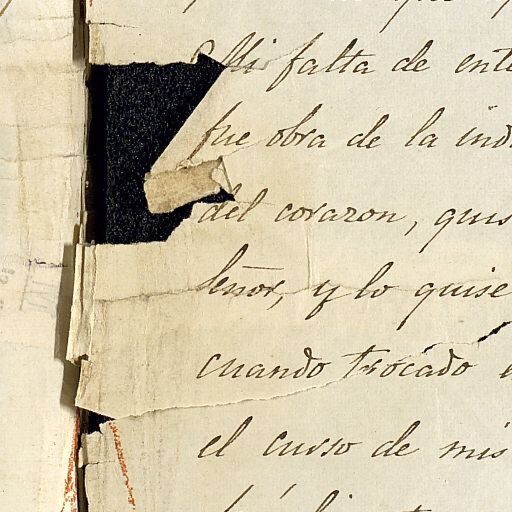 Mi falta de ent
fue obra de la ind
del corazon, quis
Señor, y lo quise
cuando trocado
el curso de mis